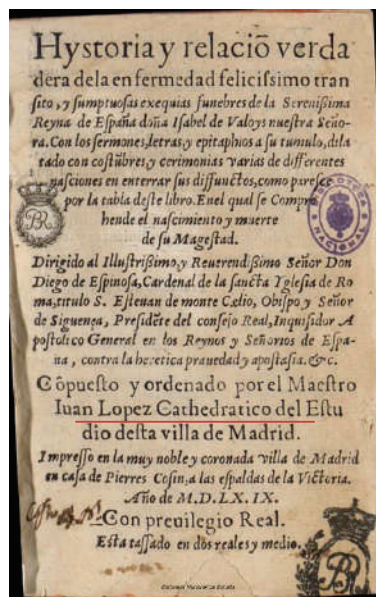 Hystoria y relaciõ verda
dera dela en fermedad felicissimo tran
sito, y sumptuosas exequias funebres de la Serenissima
Reyna de España doña Isabel de Valoys nuestra Seño-
ra. Con los sermones, letras y epitaphios a su tumulo, dila
tado con costũbres, y cerimonias varias de differentes
nasciones en enterrar sus diffunctos, como paresce
por la tabla deste libro. En el qual se Compre
hende el nascimiento y muerte
de su Magestad.
BR
BIBLIOTECA NACIONAL
Dirigido al Illustrissimo, y Reuerendissimo Señor Don
Diego de Espinosa, Cardenal de la sancta Yglesia de Ro
ma, titulo S. Esteuan de monte Cælio, Obispo, y Señor
de Siguença, Presidẽte del consejo Real, Inquisidor A
postolico General en los Reynos y Señorios de Espa-
ña, contra la heretica prauedad y apostasia. &c.
Cõpuesto y ordenado por el Maestro
Iuan Lopez Cathedratico del Estu
dio desta villa de Madrid.
Impresso en la muy noble y coronada villa de Madrid
en casa de Pierres Cosin, a las espaldas de la Victoria.
Año de M.D.LX.IX.
Con preuilegio Real.
Esta tassado en dos reales y medio.
BR